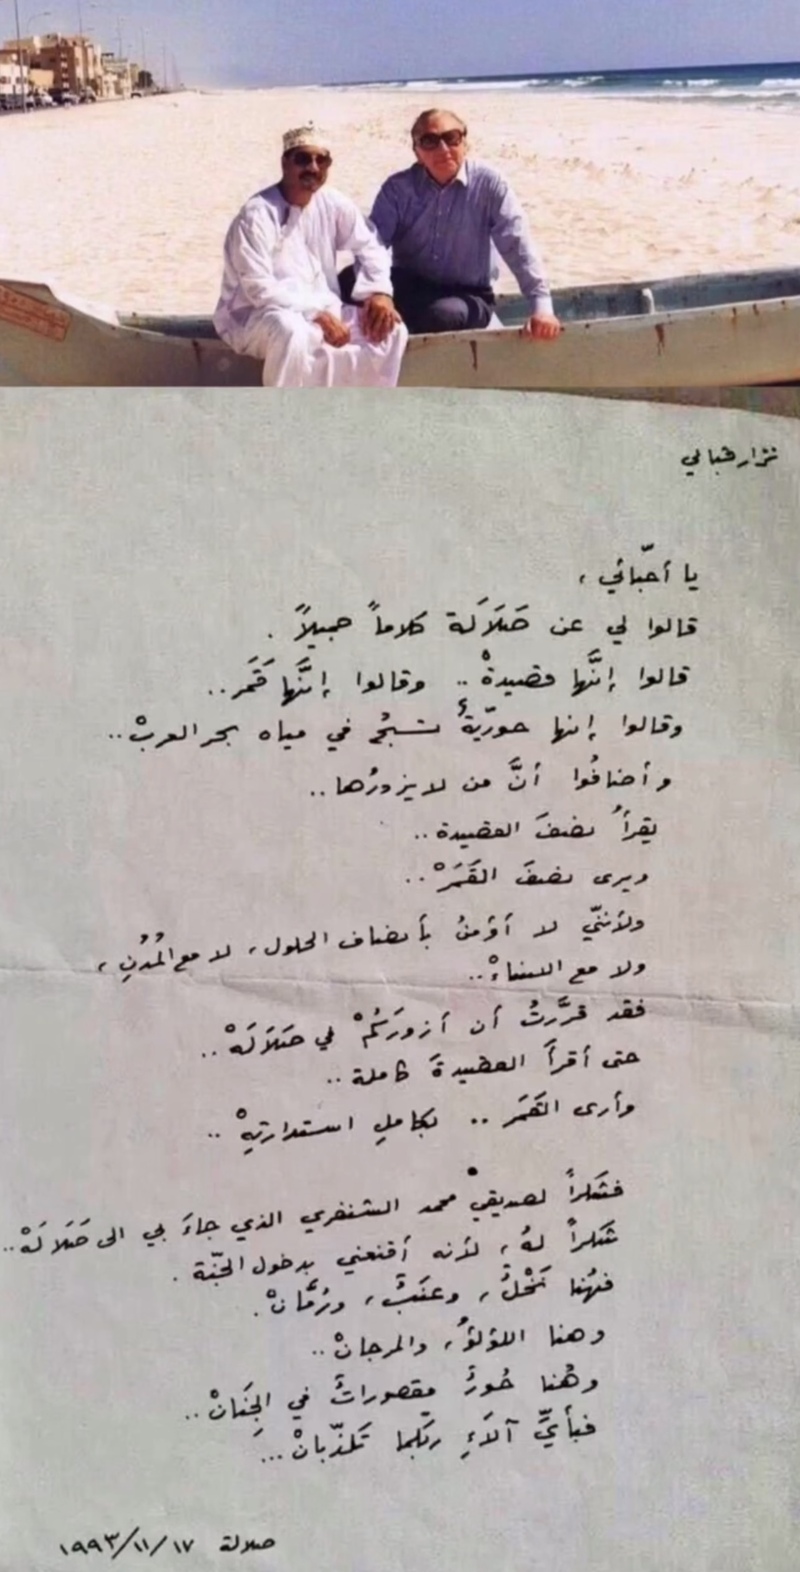 نزار قباني
يا أحبّائي،
قالوا لي عن صَلَالَة كلاماً جميلاً.
قالوا إنَّها قصيدةْ.. وقالوا إنَّها قَمَر..
وقالوا إنها حوريّةٌ تسبَحُ في مياه بحر العربْ..
وأضافُوا أنَّ من لا يزورُها..
يقرأُ نصفَ القصيدة..
ويرى نصفَ القَمَرْ..
ولأننيّ لا أؤمنُ بأنصاف الحلول، لا مع المُدُنِ،
ولا مع النساءْ..
فقد قرَّرتُ أن أزورَكُمْ في صَلَالَهْ..
حتى أقرأَ القصيدةَ كاملة..
وأرى القَمَر.. بكاملِ استدارتِهِْ..
فشكراً لصديقيْ محمد الشنفري الذي جاءَ بي الى صَلَالَهْ..
شكراً لهُ، لأنه أقنعني بدخول الجنّة.
فهُنا نَخْلٌ، وعنَبٌ، ورُمَّانْ.
وهنا اللؤلؤُ، والمرجانْ..
وهُنا حُورٌ مقصوراتٌ في الجِنَانْ..
فبأيِّ آلاَءِ ربّكما تُكَذّبانْ...
صلالة ١٩٩٣/١١/١٧